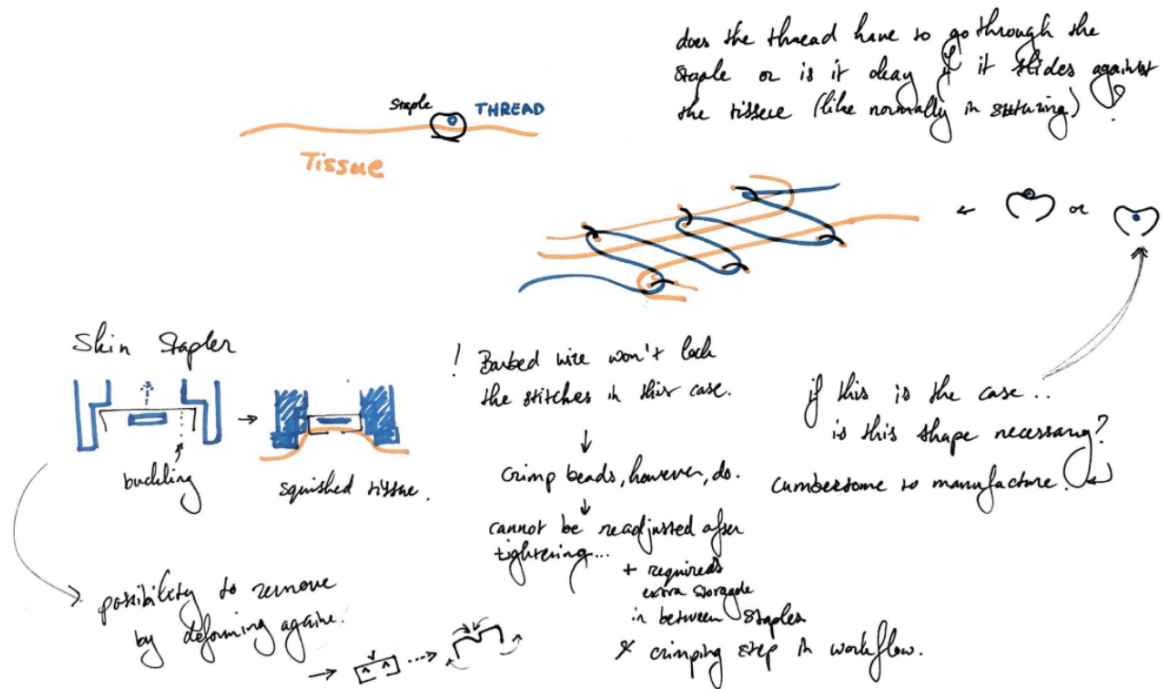 does the thread have to go through the
staple or is it okay if it slides against
the tissue (like normally in suturing)?
Staple
THREAD
Tissue
or
Skin Stapler
buckling
squished tissue.
possibility to remove
by deforming again.
! Barbed wire won't lock
the stitches in this case.
Crimp beads, however, do.
cannot be readjusted after
tightening...
+ required
extra storage
in between staples
& crimping step in workflow.
if this is the case..
is this shape necessary?
cumbersome to manufacture!